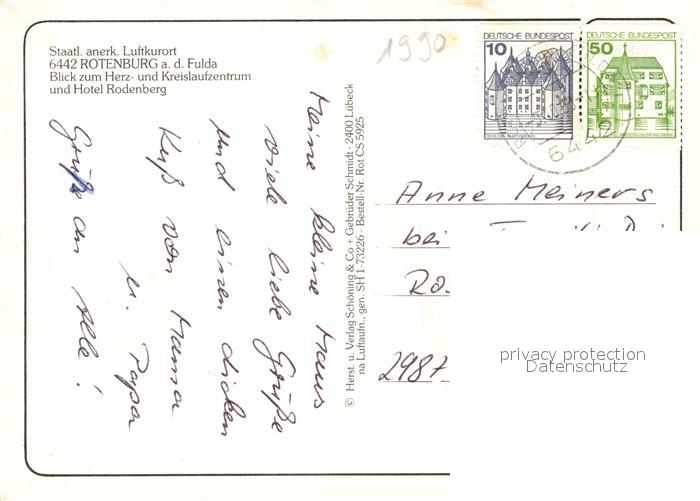 Staatl. anerk. Luftkurort
6442 ROTENBURG a. d. Fulda
Blick zum Herz- und Kreislaufzentrum
und Hotel Rodenberg
1990
DEUTSCHE BUNDESPOST
10
SCHLOSS GLÜCKSBURG
DEUTSCHE BUNDESPOST
50
WASSERSCHLOSS INZLINGEN
6442
Meine kleine Maus
viele liebe Grüße
und einen dicken
Kuß von Mama
u. Papa
Grüße an Alle!
© Herst. u. Verlag Schöning & Co + Gebrüder Schmidt · 2400 Lübeck
na Luftaufn., gen. SH 1-73226 · Bestell-Nr. Rot CS 5925
Anne Meiners
bei
2987
privacy protection
Datenschutz